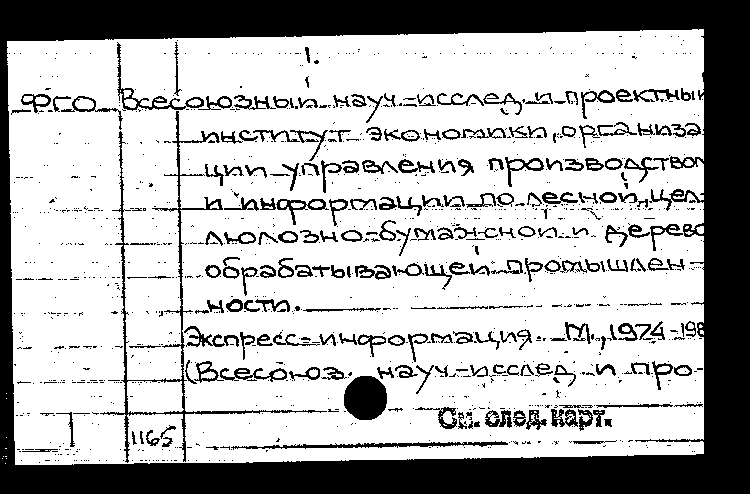 1.
ФГО Всесоюзный науч.-исслед. и проектный
институт экономики, организа-
ции управления производством
и информации по лесной, цел-
люлозно-бумажной и дерево
обрабатывающей промышлен-
ности.
Экспресс-информация. М., 1974-198
(Всесоюз. науч.-исслед. и про-
См. след. карт.
1165